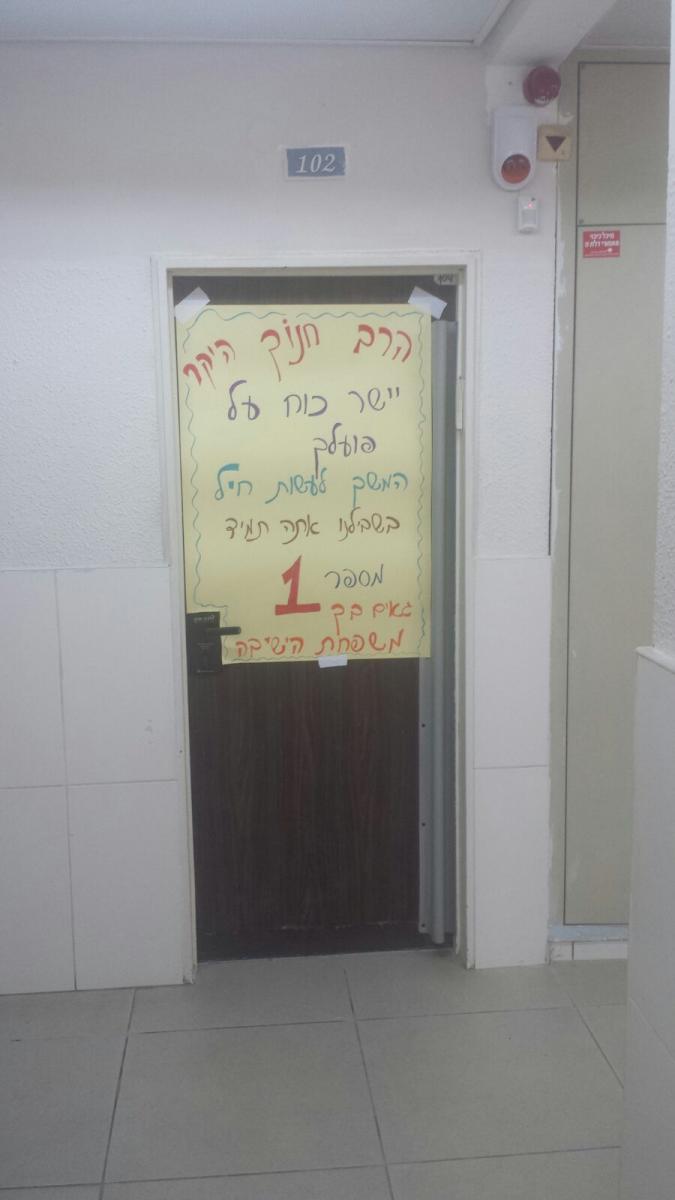 102
הרב חנוך היקר
יישר כוח על
פועלך
המשך לעשות חיל
בשבילנו אתה תמיד
מספר
1
גאים בך
משפחת הישיבה